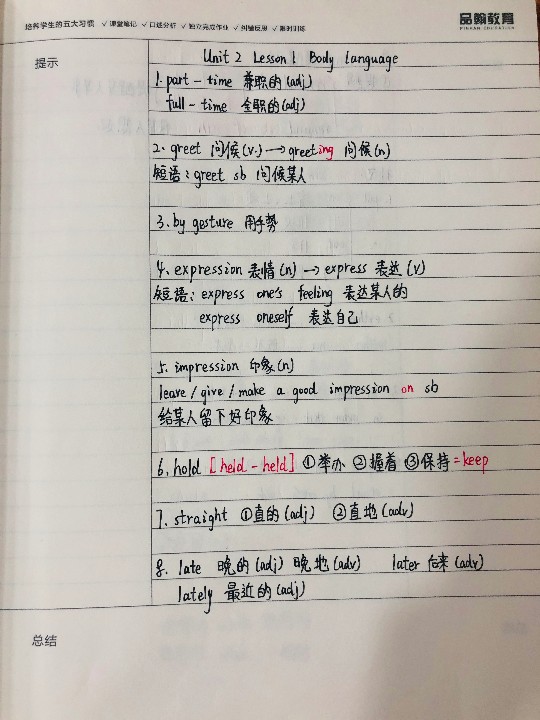 培养学生的五大习惯 ✓课堂笔记 ✓口述分析 ✓独立完成作业 ✓纠错反思 ✓限时训练
品翰教育
PINHAN EDUCATION
提示
Unit 2 Lesson 1 Body language
1. part-time 兼职的(adj)
full-time 全职的(adj)
2. greet 问候(v.)→greeting 问候(n)
短语:greet sb 问候某人
3. by gesture 用手势
4. expression 表情(n)→express 表达(v)
短语:express one's feeling 表达某人的
express oneself 表达自己
5. impression 印象(n)
leave/give/make a good impression on sb
给某人留下好印象
6. hold [held-held] ①举办 ②握着 ③保持=keep
7. straight ①直的(adj) ②直地(adv)
8. late 晚的(adj) 晚地(adv) later 后来(adv)
lately 最近的(adj)
总结